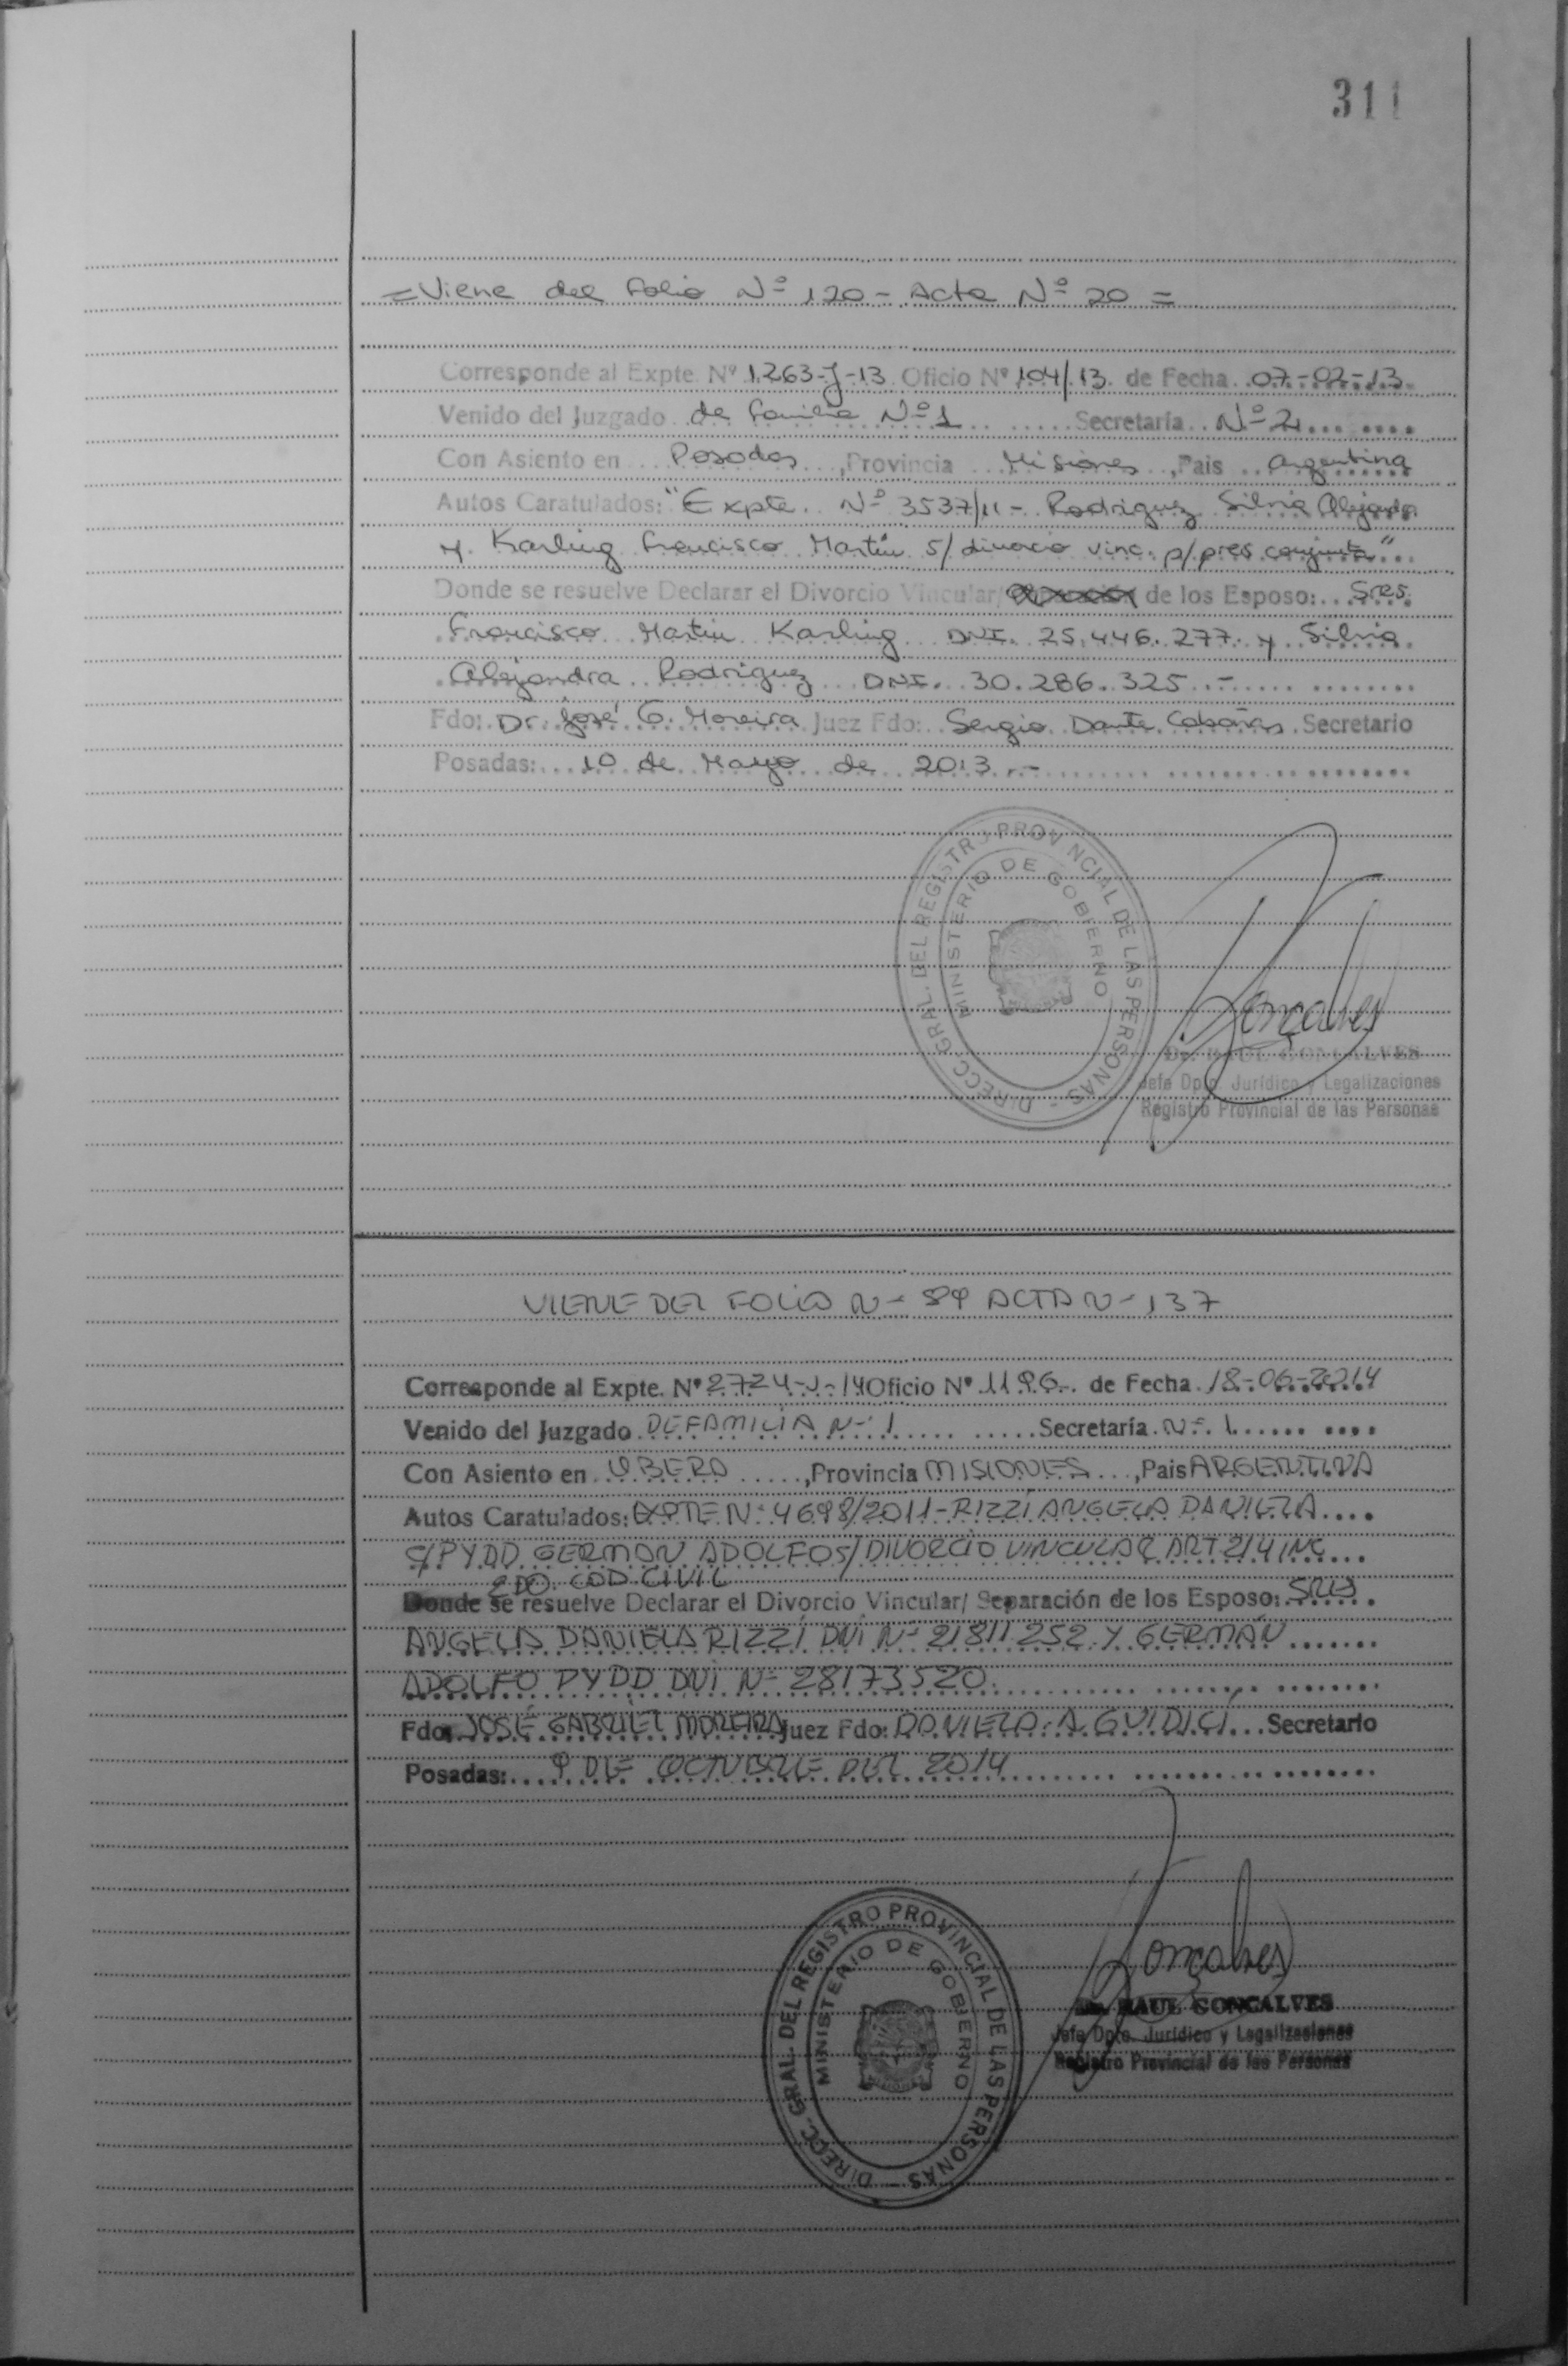 311
= Viene del folio Nº 120 - Acta Nº 20 =
Corresponde al Expte. Nº 1263-J-13 Oficio Nº 104/13 de Fecha 07-02-13
Venido del Juzgado de familia Nº 1 Secretaría Nº 2
Con Asiento en Posadas, Provincia Misiones, Pais Argentina
Autos Caratulados: "Expte. Nº 3537/11 - Rodriguez Silvia Alejandra
y Karling Francisco Martín s/ divorcio vinc. p/ pres. conjunta"
Donde se resuelve Declarar el Divorcio Vincular/ de los Esposo: Sres.
Francisco Martin Karling DNI. 25.446.277 y Silvia
Alejandra Rodriguez DNI. 30.286.325.-
Fdo: Dr. José G. Moreira Juez Fdo: Sergio Dante Cabañas Secretario
Posadas: 10 de Mayo de 2013.-
DIRECC. GRAL. DEL REGISTRO PROVINCIAL DE LAS PERSONAS -
MINISTERIO DE GOBIERNO
Gonçalves
Dr. RAUL GONCALVES
Jefe Dpto. Jurídico y Legalizaciones
Registro Provincial de las Personas
VIENE DEL FOLIO N- 89 ACTA N- 137
Corresponde al Expte. Nº 2724-J-14 Oficio Nº 1196 de Fecha 18-06-2014
Venido del Juzgado DE FAMILIA N-1 Secretaría N-1
Con Asiento en OBERA, Provincia MISIONES, Pais ARGENTINA
Autos Caratulados: EXPTE N- 4698/2011 - RIZZI ANGELA DANIELA
C/ PYDD GERMAN ADOLFO S/ DIVORCIO VINCULAR ART 214 INC
2DO. COD. CIVIL
Donde se resuelve Declarar el Divorcio Vincular/ Separación de los Esposo: SRES
ANGELA DANIELA RIZZI DNI Nº 21811252 Y GERMÁN
ADOLFO PYDD DNI Nº 28173520
Fdo: JOSÉ GABRIEL MOREIRA Juez Fdo: DANIELA A. GUIDICI Secretario
Posadas: 9 DE OCTUBRE DEL 2014
DIRECC. GRAL. DEL REGISTRO PROVINCIAL DE LAS PERSONAS -
MINISTERIO DE GOBIERNO
Gonçalves
Dr. RAUL GONCALVES
Jefe Dpto. Jurídico y Legalizaciones
Registro Provincial de las Personas